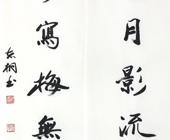 月影流
寫梅無